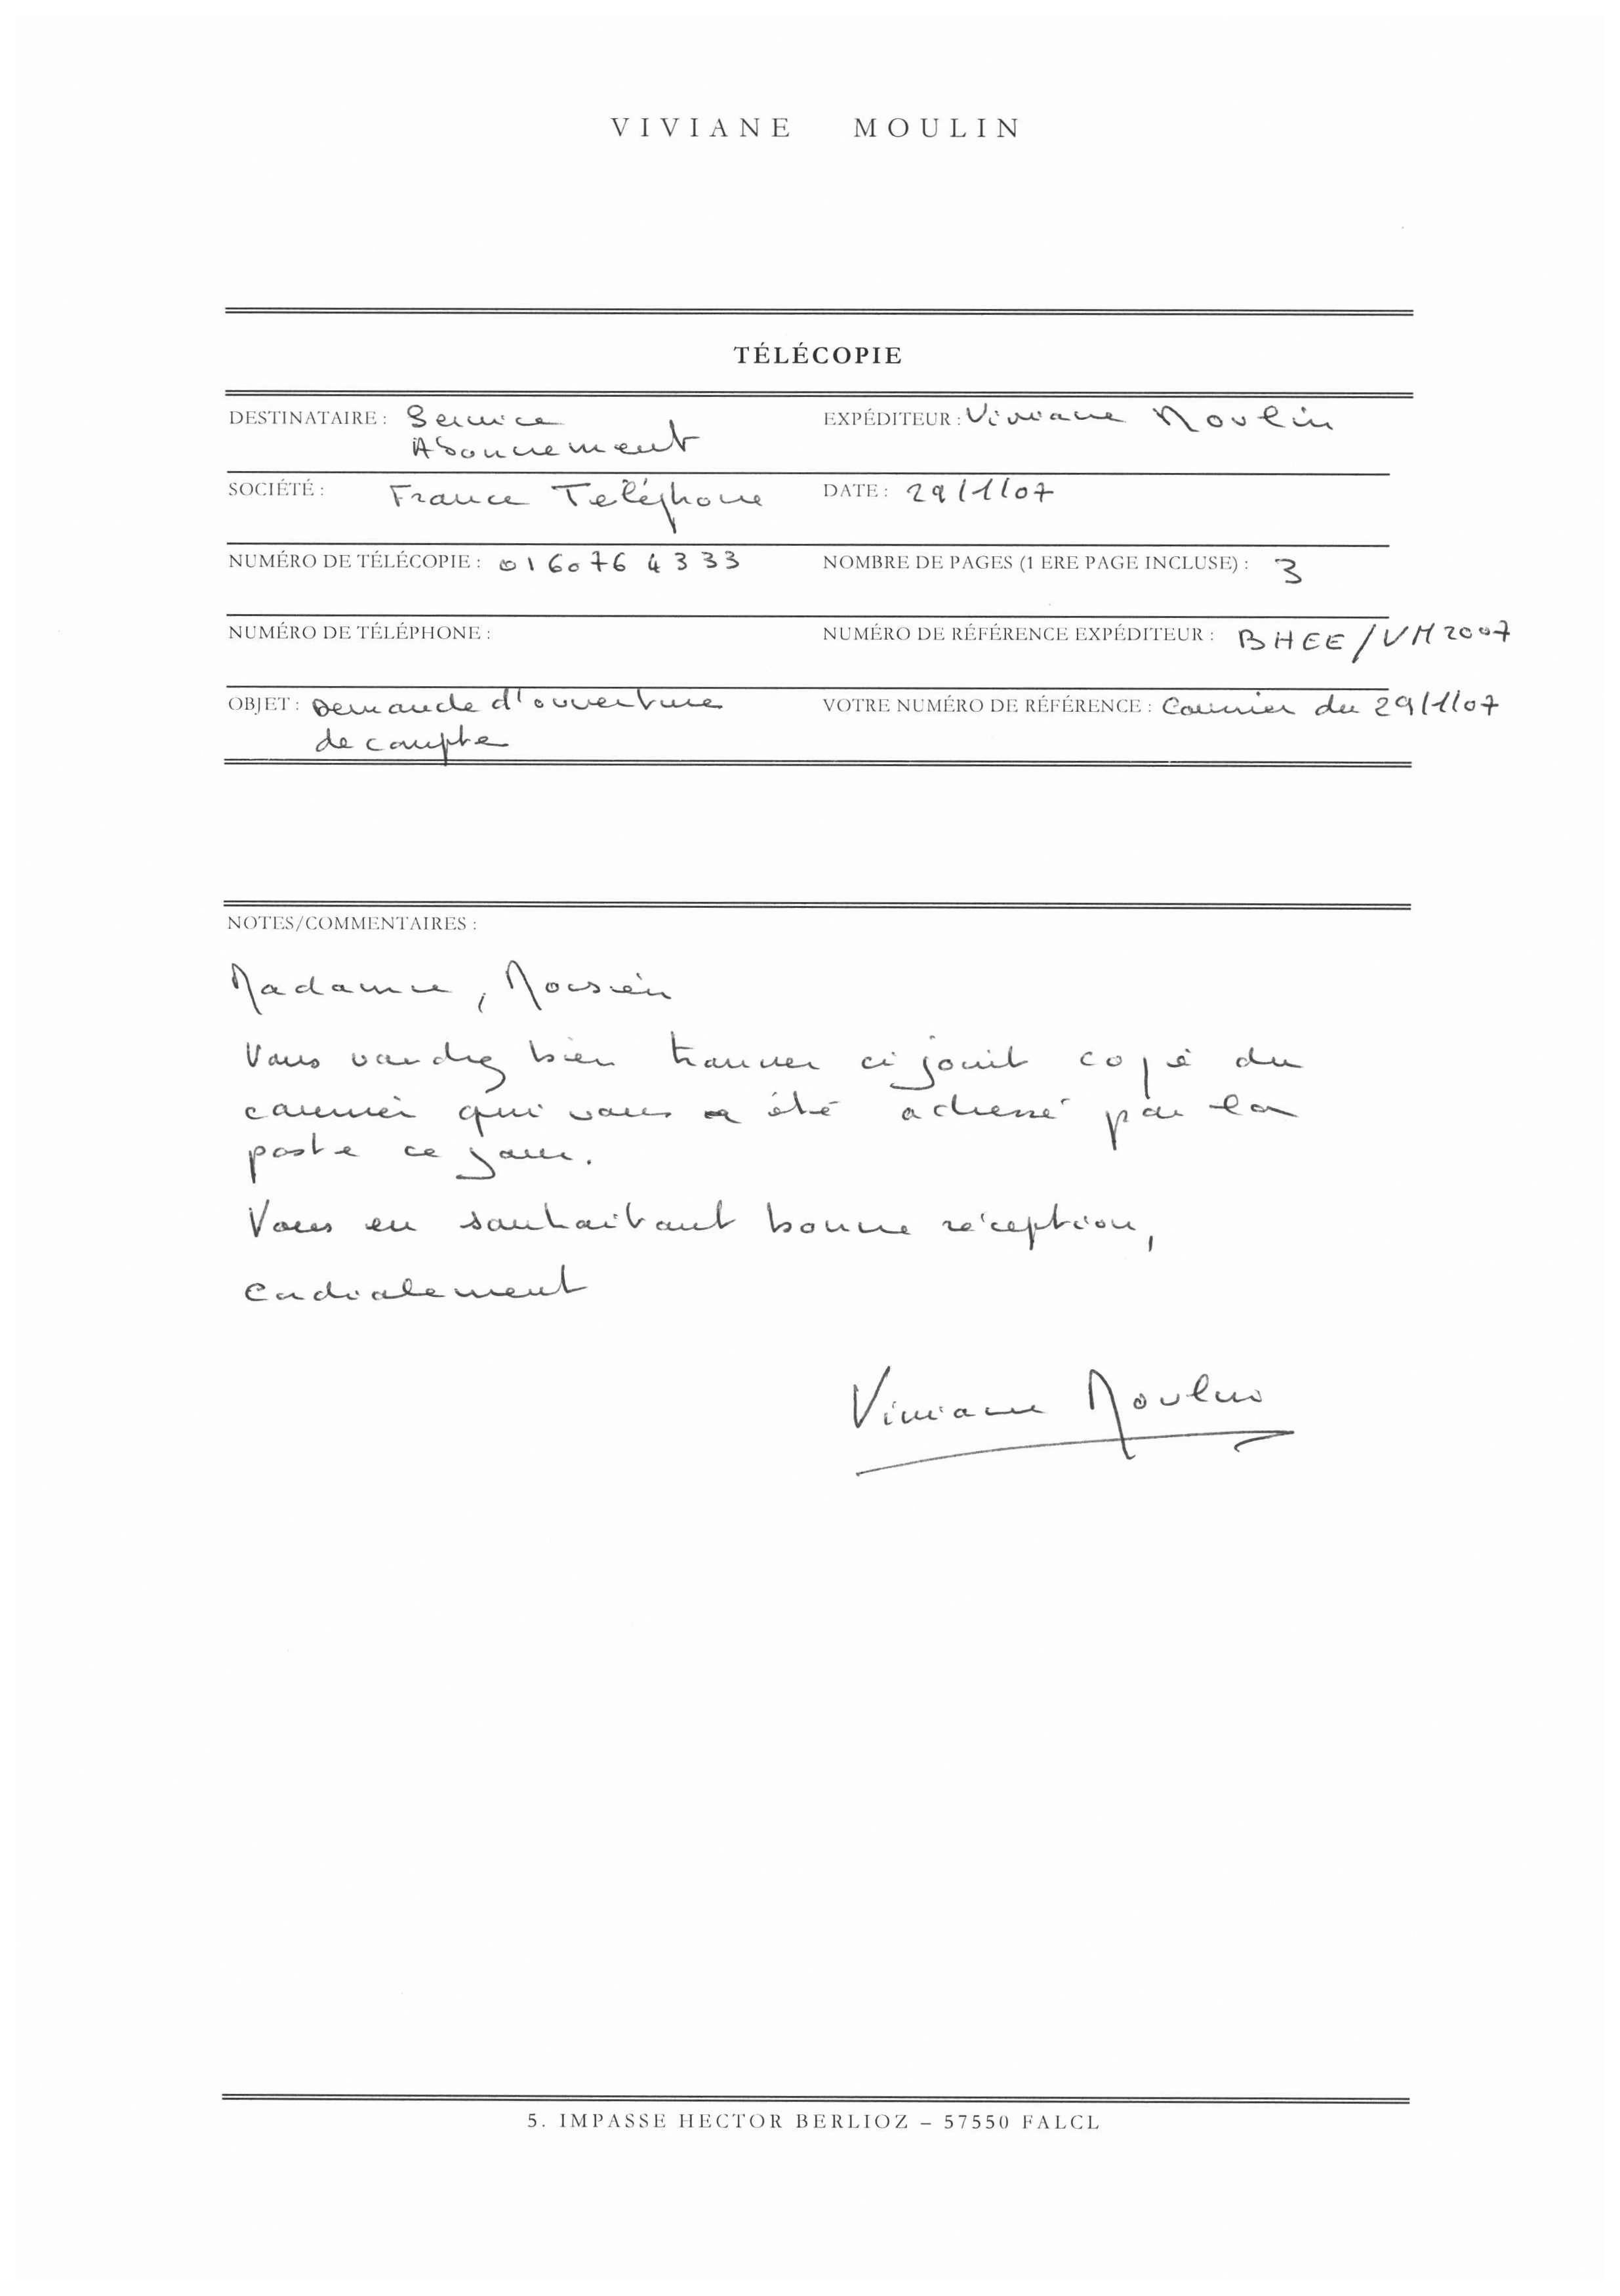 VIVIANE MOULIN
TÉLÉCOPIE
DESTINATAIRE : Service EXPÉDITEUR : Viviane Moulin
Abonnement
SOCIÉTÉ : France Téléphone DATE : 29/1/07
NUMÉRO DE TÉLÉCOPIE : 0160764333 NOMBRE DE PAGES (1 ERE PAGE INCLUSE) : 3
NUMÉRO DE TÉLÉPHONE : NUMÉRO DE RÉFÉRENCE EXPÉDITEUR : BHEE/VM2007
OBJET : Demande d'ouverture VOTRE NUMÉRO DE RÉFÉRENCE : Courrier du 29/1/07
de compte
NOTES/COMMENTAIRES :
Madame, Monsieur
Vous voudrez bien trouver ci joint copie du
courrier qui vous a été adressé par la
poste ce jour.
Vous en souhaitant bonne réception,
Cordialement
Viviane Moulin
5. IMPASSE HECTOR BERLIOZ – 57550 FALCL